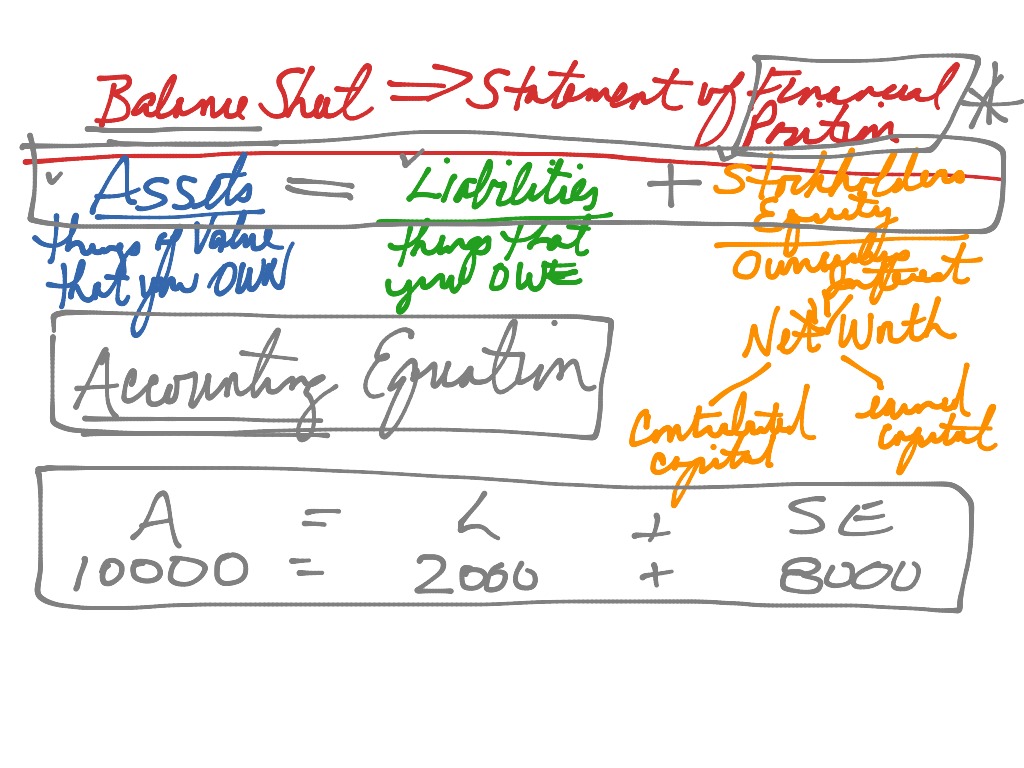 Balance Sheet => Statement of Financial Position *
Assets = Liabilities + Stockholders Equity
things of Value that you OWN
things that you OWE
Ownership Interest
Net Worth
Contributed capital
earned capital
Accounting Equation
A = L + SE
10000 = 2000 + 8000